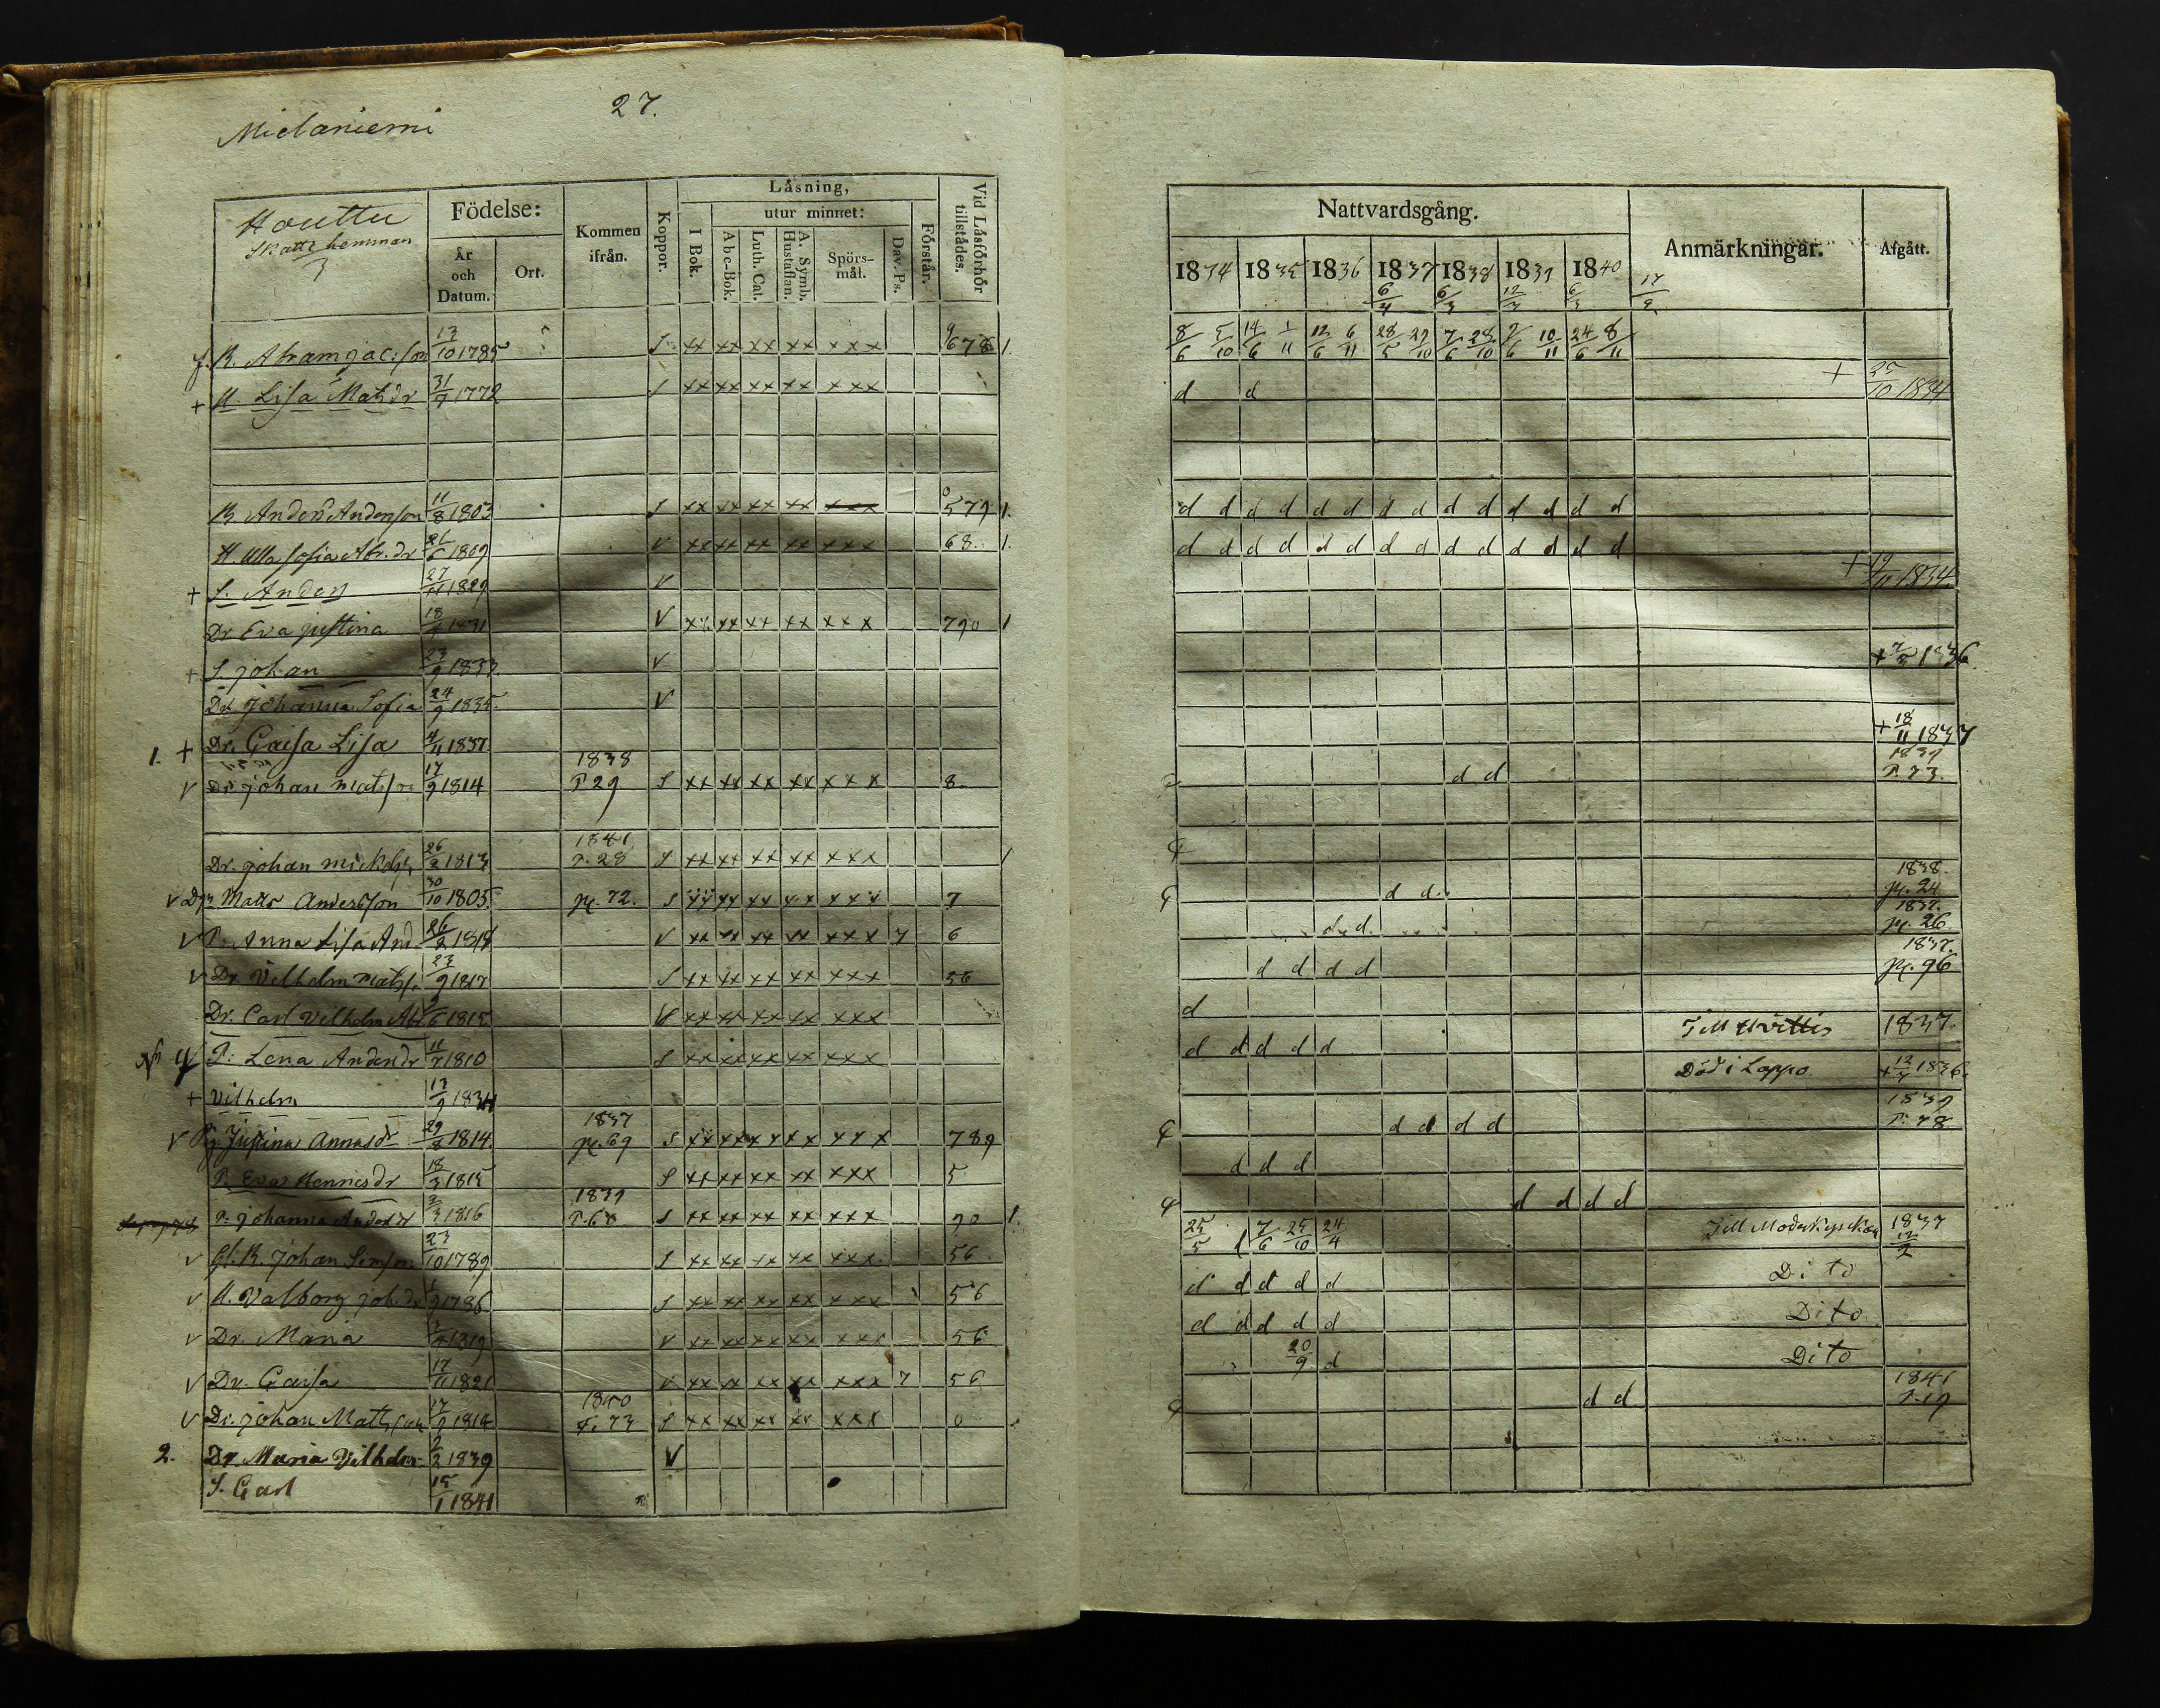 27.
Mielaniemi
Houttu
Skatte hemman
Födelse:
År och Datum.
Ort.
Kommen ifrån.
Koppor.
Läsning,
I Bok.
utur minnet:
A b c-Bok.
Luth. Cat.
A. Symb. Hustaflan.
Spörs-mål.
Dav. Ps.
Förstår.
Vid Läsförhör tillstädes.
Nattvardsgång.
1834 1835 1836 1837 1838 1839 1840
Anmärkningar.
Afgått.
B. Abram Jac:son 13/10 1785 S xx xx xx xx xxx 678 1.
8/6 5/10 14/6 1/11 12/6 6/11 28/5 29/10 7/6 28/10 2/6 10/11 24/6 8/11
+ H. Lisa Matsdr 31/7 1772 S xx xx xx xx xxx
d d + 25/10 1834
B. Anders Andersson 11/8 1803 S xx xx xx xx xxx 579 1.
d d d d d d d d d d d d d d
H. Ulla Sofia Abr.dr 1809 V xx xx xx xx xxx 68. 1.
d d d d d d d d d d d d d d
+ S. Anders 27/11 1829 V
+ 19/11 1834
Dr Eva Justina 18/4 1831 V xx xx xx xx xxx 790 1
+ S. Johan 23/9 1833 V
1836
Dr Johanna Sofia 24/9 1835 V
1. + Dr. Caisa Lisa 4/11 1837
+ 18/11 1837
V Dr Johan Matsson 17/9 1814 1838 P 29 S xx xx xx xx xxx 8
d d 1839 P. 73.
Dr. Johan Mickels. 26/2 1813 1841 P. 28 S xx xx xx xx xxx 1
V Matts Andersson 30/10 1805 pg. 72. S xx xx xx xx xxx 7
d d 1838. pg. 24
V P. Anna Lisa And. 26/2 1818 V xx xx xx xx xxx 7 6
d d 1837. pg. 26
V Dr. Vilhelm Mats. 23/9 1817 S xx xx xx xx xxx 56
d d d d 1837. pg. 96
Dr. Carl Vilhelm V xx xx xx xx xxx
d
P: Lena Andersdr 11/7 1810 S xx xx xx xx xxx
d d d d d Till Hvittis 1837.
+ Vilhelm 13/9 1834
Död i Lappo + 1836.
V Justina Annasdr 1814. 1837 pg. 69 S xx xx xx xx xxx 789
d d d d 1839 P. 78
P. Eva Hennicsdr 18/3 1815 S xx xx xx xx xxx 5
d d d
P. Johanna Andersdr 3/3 1816 1839 P. 68 S xx xx xx xx xxx 90 1.
d d d d
V Gl. B. Johan Simson 23/10 1789 S xx xx xx xx xxx 56
25/5 7/6 25/10 24/4 Till Moderkyrkan 1837 12/2
V H. Valborg Joh.dr 1786 S xx xx xx xx xxx 56
d d d d d Dito
V Dr. Maria 1819 V xx xx xx xx xxx 56
d d d d d Dito
V Dr. Caisa 17/11 1821 V xx xx xx xx xxx 7 56
20/9 d Dito
V Dr. Johan Mattsson 17/9 1814 1840 P. 73 S xx xx xx xx xxx 0
d d 1841 P. 19
2. Dr Maria Vilhelm 2/2 1839 V
S. Carl 15/1 1841